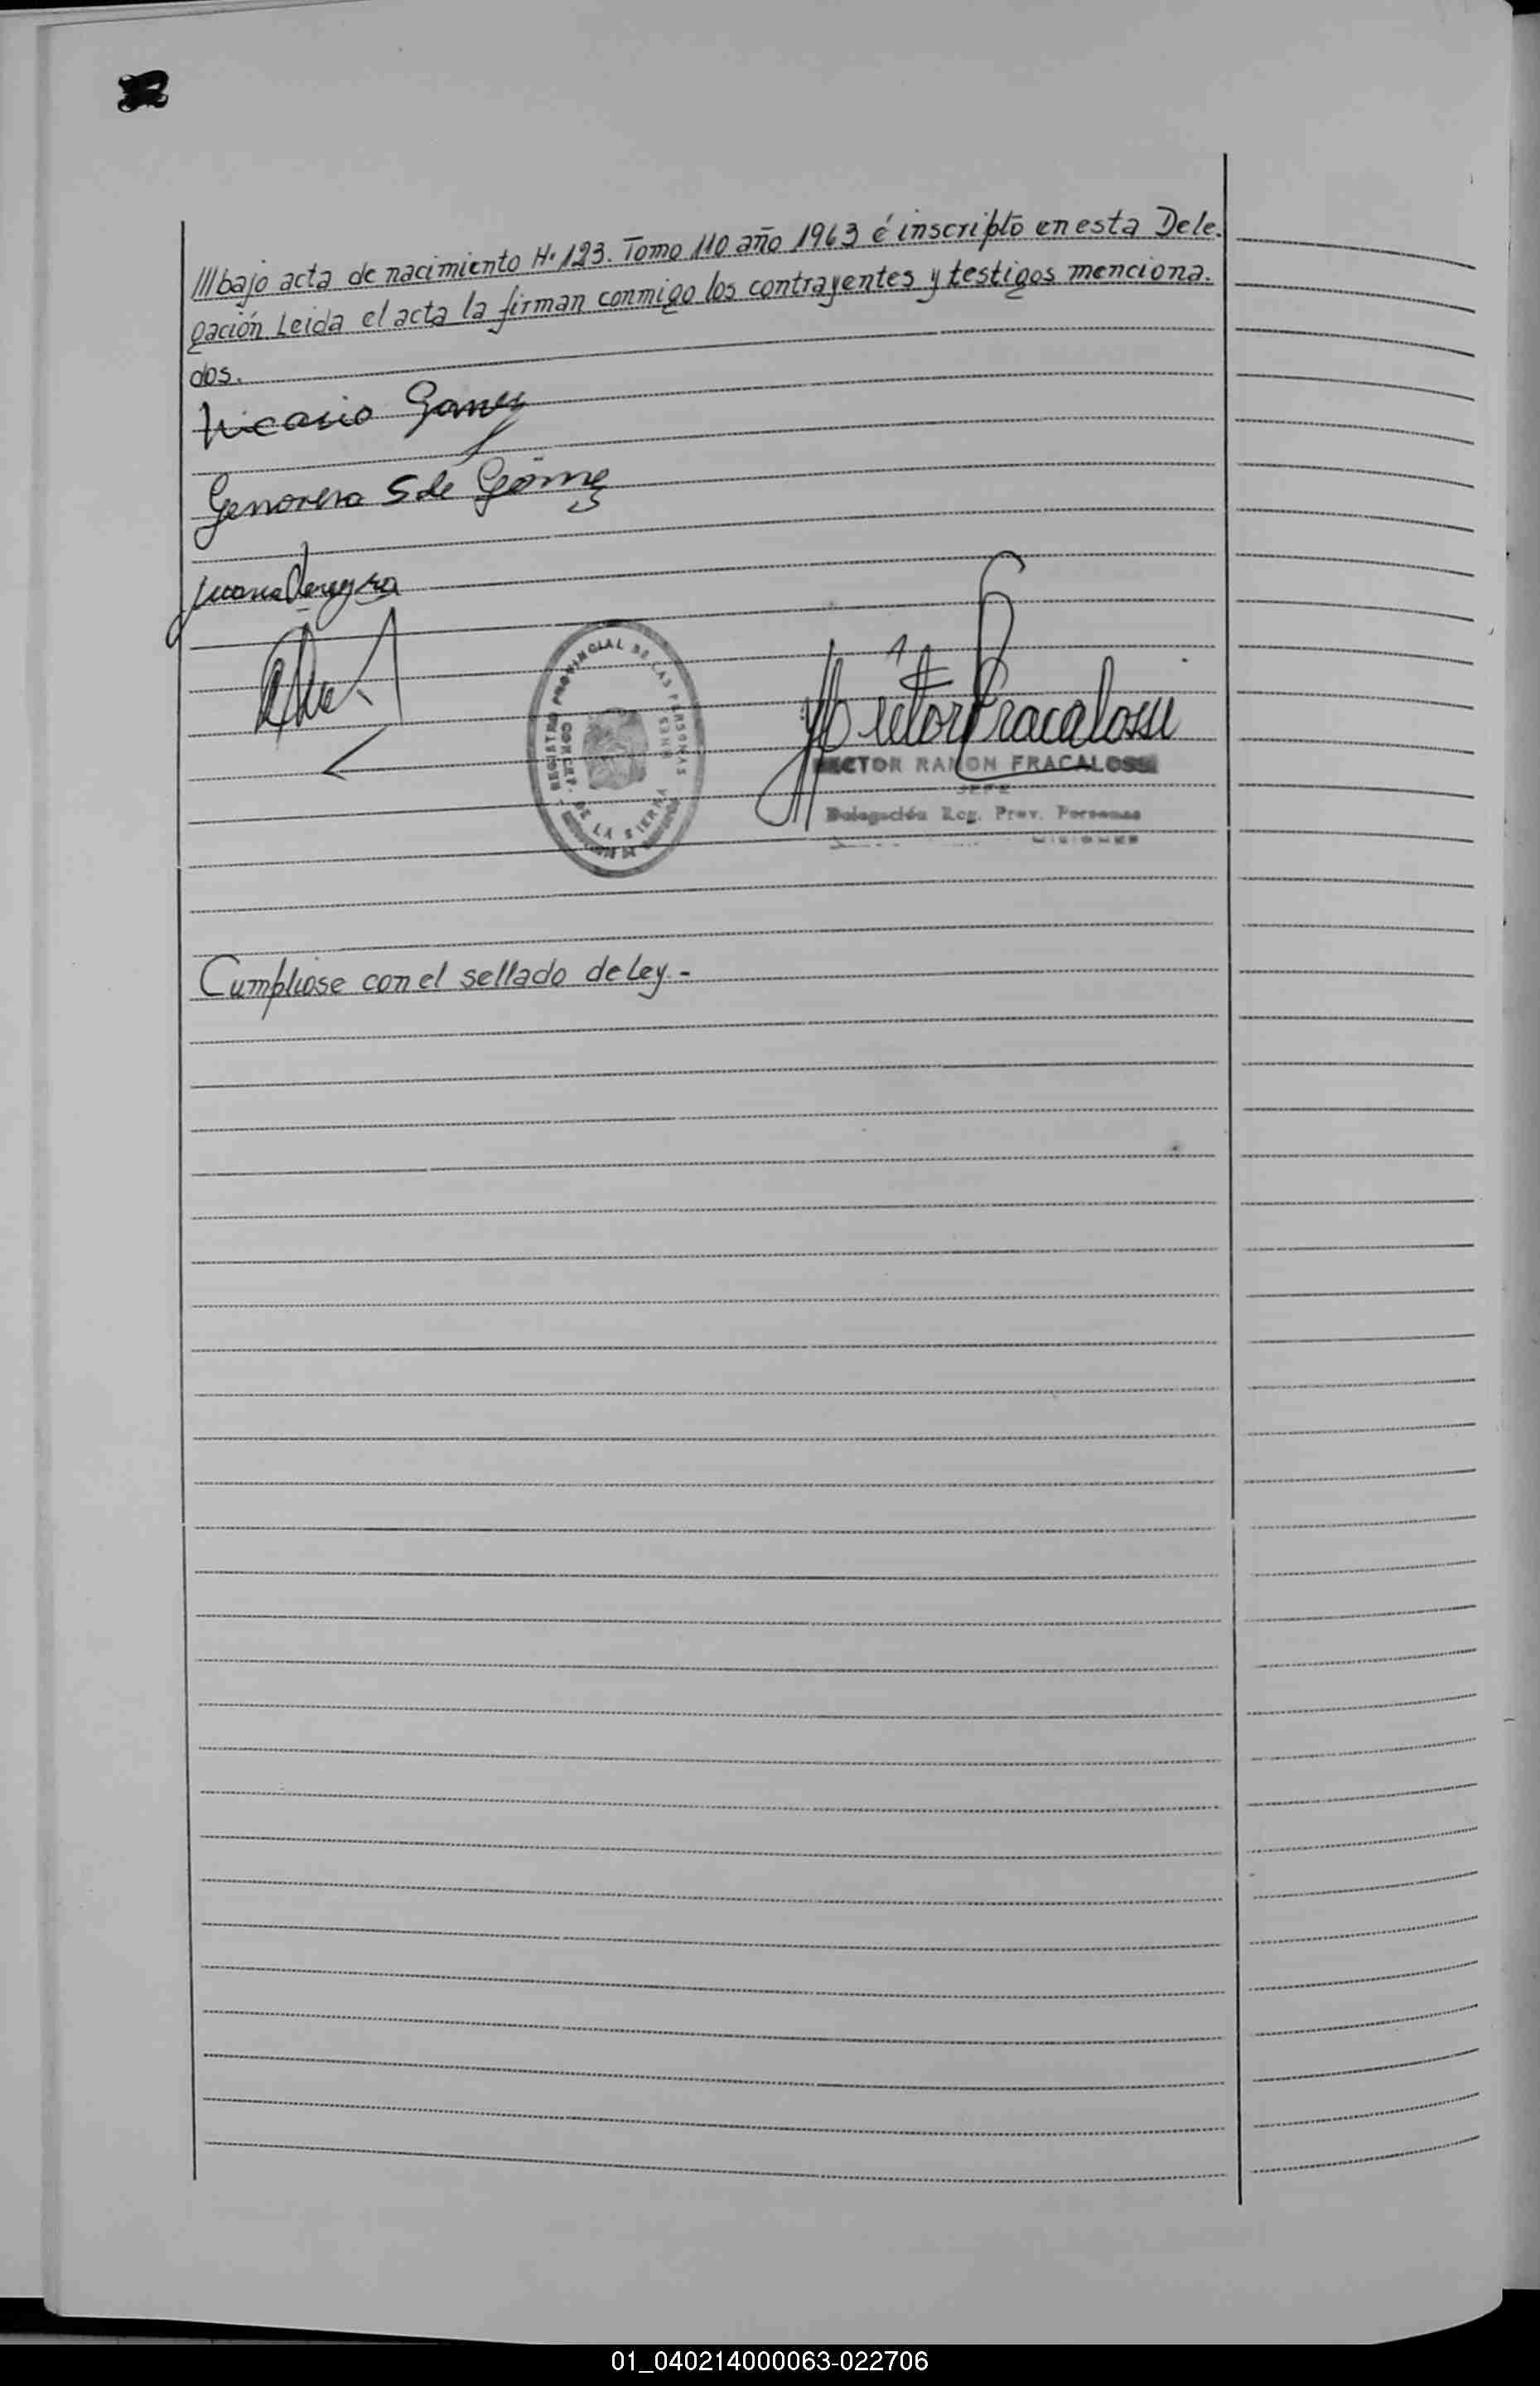 ///bajo acta de nacimiento Nº 123. Tomo 110 año 1963 é inscripto en esta Dele-
gación. Leida el acta la firman conmigo los contrayentes y testigos menciona-
dos.
Nicasio Gomez
Genoveva S de Gómez
Juana
REGISTRO PROVINCIAL DE LAS PERSONAS
CONCEP. DE LA SIERRA
Hector Fracalossi
HECTOR RAMON FRACALOSSI
JEFE
Delegación Reg. Prov. Personas
MISIONES
Cumpliose con el sellado de Ley.-
01_040214000063-022706